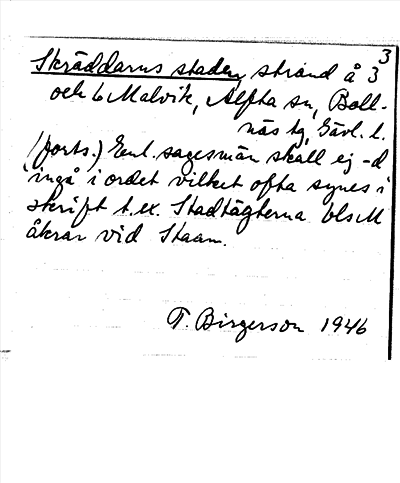 3
Skräddarns staden, strand å 3
och 6 Malvik, Alfta sn, Boll-
näs tg, Gävl. l.
(forts.) Enl. sagesmän skall ej -d
ingå i ordet vilket ofta synes i
skrift t.ex. Stadtägterna bland
åkrar vid Staam.
T. Birgerson 1946